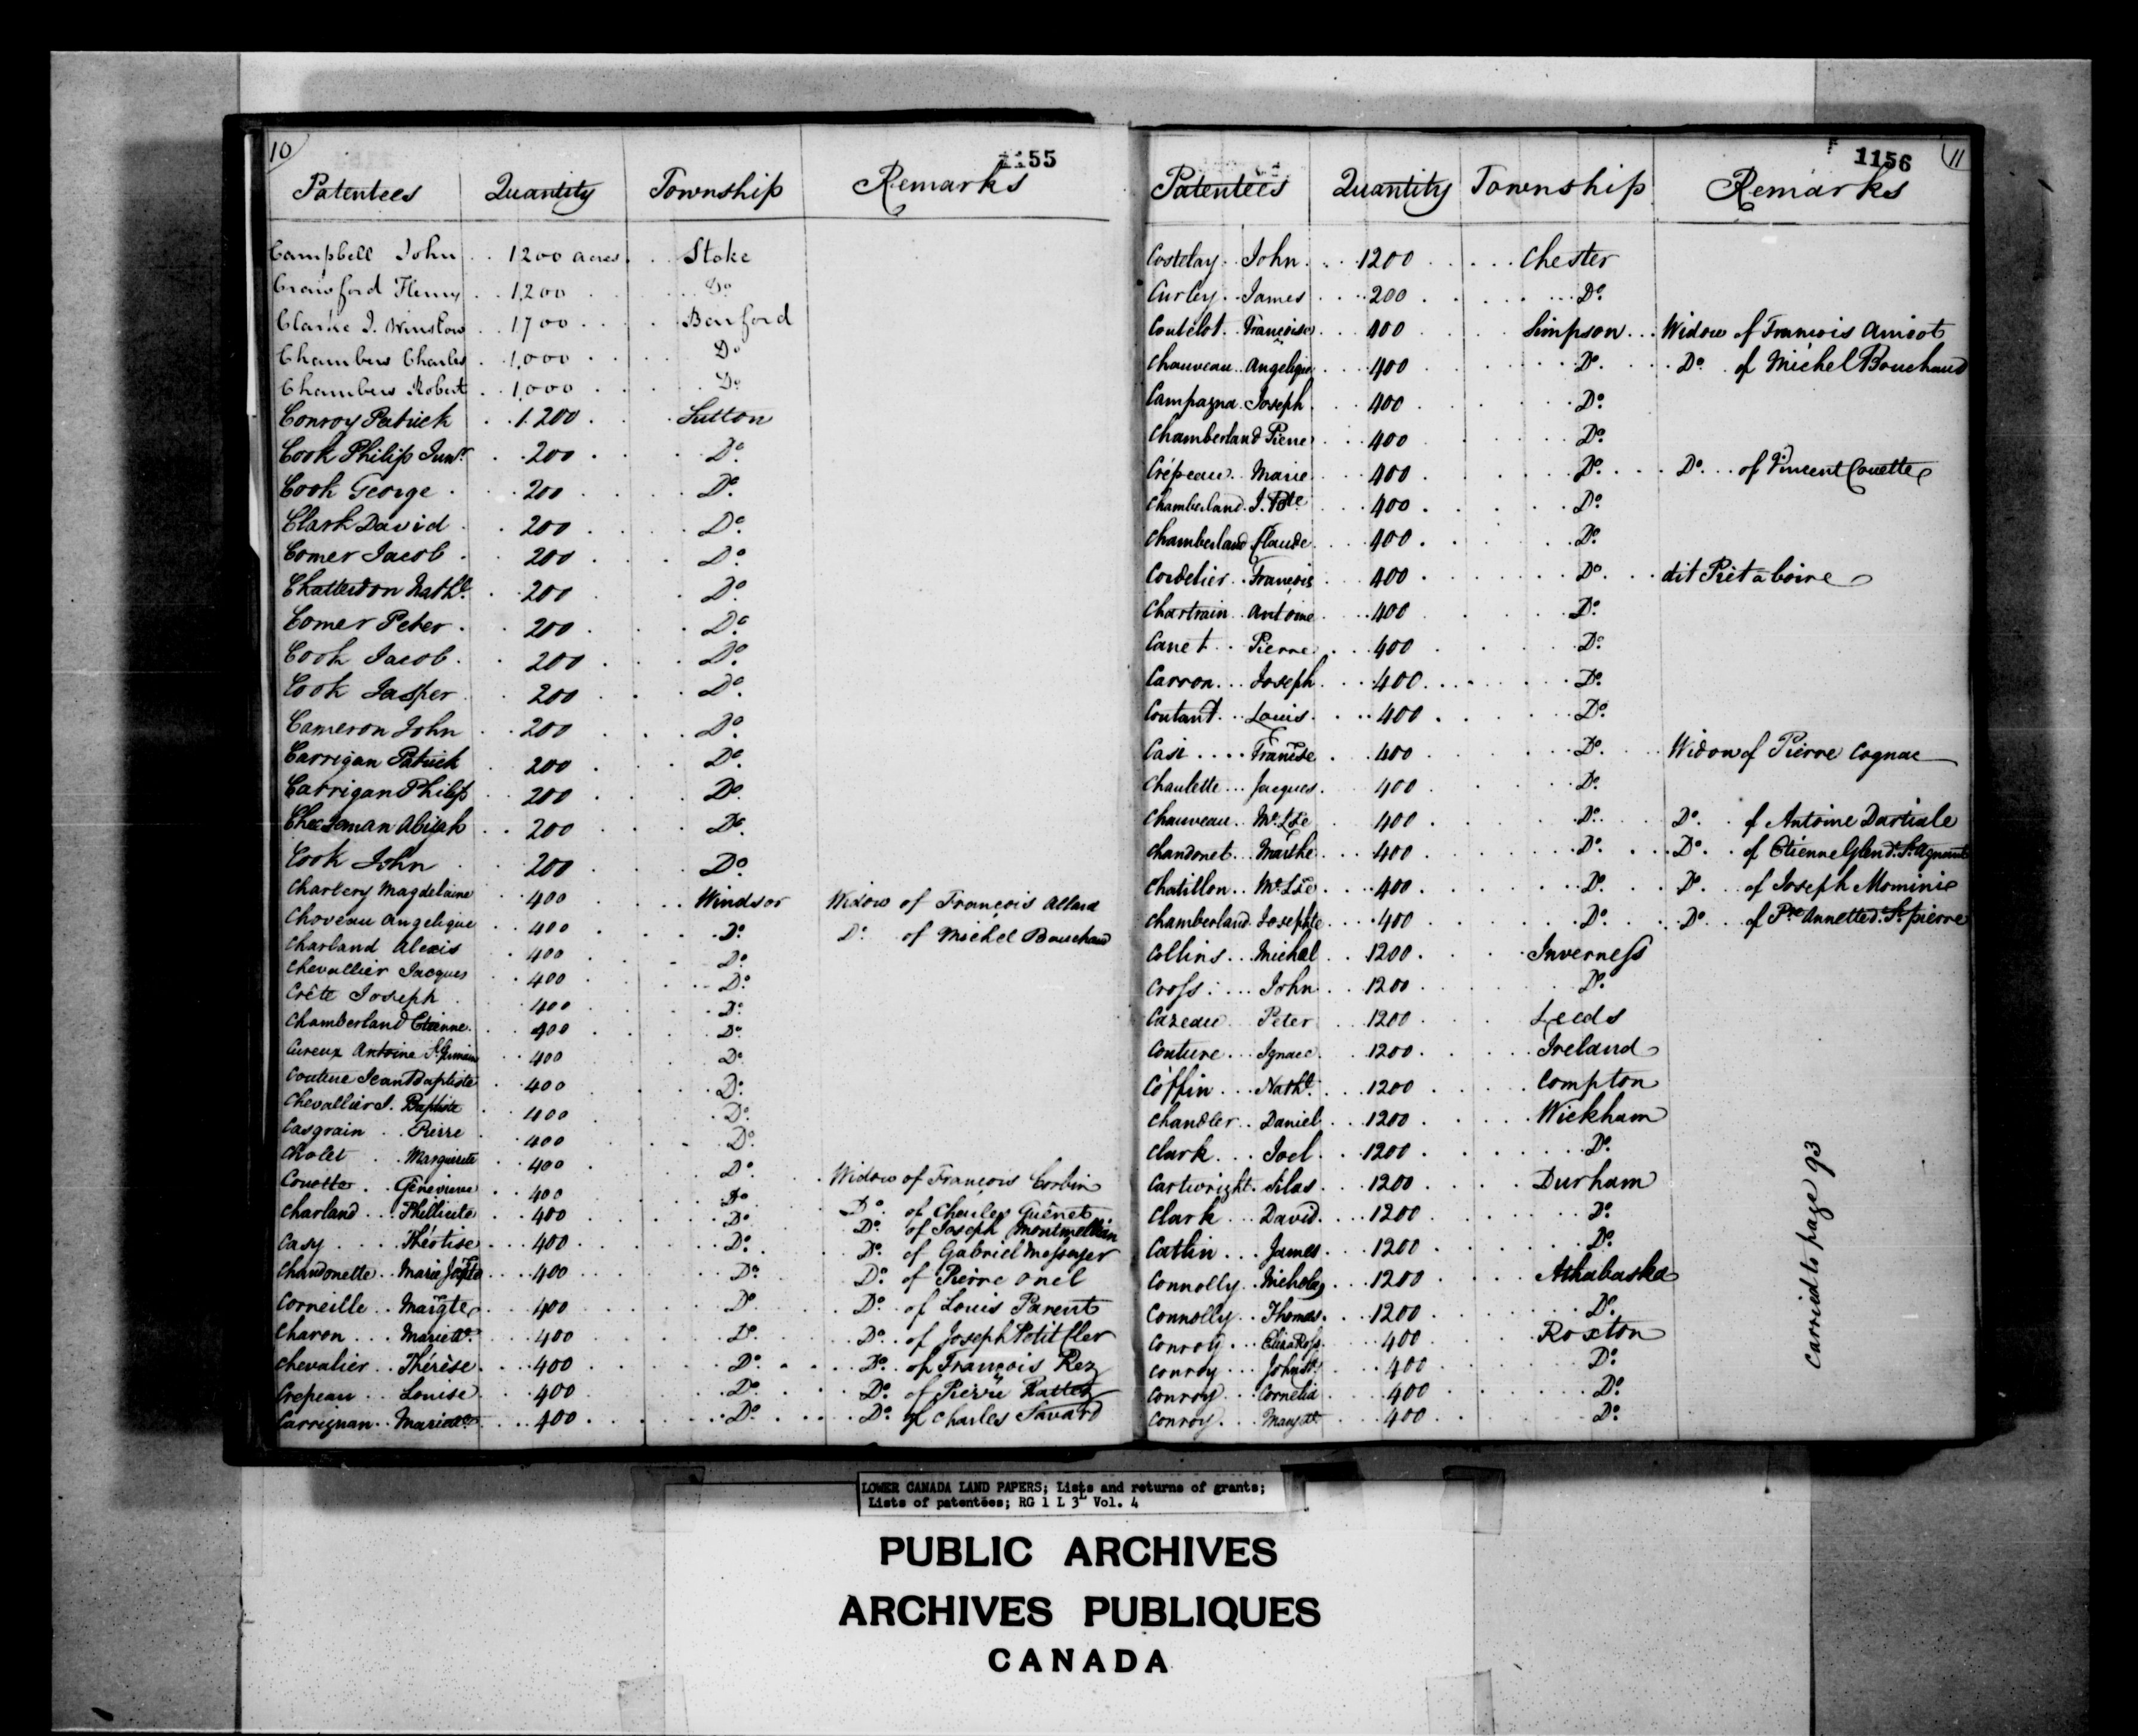 10
1155
Patentees Quantity Township Remarks
Campbell John 1200 acres Stoke
Crawford Henry 1,200 Do
Clarke J. Winslow 1700 Barford
Chambers Charles 1,000 Do
Chambers Robert 1,000 Do
Conroy Patrick 1.200 Sutton
Cook Philip Junr. 200 Do.
Cook George 200 Do.
Clark David 200 Do.
Comer Jacob 200 Do.
Chatterdon Nathl. 200 Do.
Comer Peter 200 Do.
Cook Jacob 200 Do.
Cook Jasper 200 Do.
Cameron John 200 Do.
Carrigan Patrick 200 Do.
Carrigan Philip 200 Do.
Cheeseman Abijah 200 Do.
Cook John 200 Do.
Charlery Magdelaine 400 Windsor Widow of François Allard
Choveau Angelique 400 Do. Do. of Michel Bouchard
Charland Alexis 400 Do.
Chevallier Jacques 400 Do.
Crête Joseph 400 Do.
Chamberland Etienne 400 Do.
Cureux Antoine St. Germain 400 Do.
Couture Jean Baptiste 400 Do.
Chevallier J. Baptiste 400 Do.
Casgrain Pierre 400 Do.
Cholet Marguerite 400 Do. Widow of François Corbin
Couotte Géneviève 400 Do. Do. of Charles Guênet
Charland Phillicité 400 Do. Do. of Joseph Montmellian
Casy Théotise 400 Do. Do. of Gabriel Messayer
Chandonette Marie Josfte 400 Do. Do. of Pierre Onel
Corneille Margte 400 Do. Do. of Louis Parent
Charon Marie 400 Do. Do. of Joseph Petitcler
Chevalier Thérèse 400 Do. Do. of François Rez
Crepeau Louise 400 Do. Do. of Pierre Rattez
Carrignan Marie 400 Do. Do. of Charles Savard
1156
11
Patentees Quantity Township Remarks
Costelay John 1200 Chester
Curley James 200 Do.
Coutelot Françoise 400 Simpson Widow of François Amiot
Chauveau Angelique 400 Do. Do. of Michel Bouchaud
Campagna Joseph 400 Do.
Chamberland Pierre 400 Do.
Crépeau Marie 400 Do. Do. of Vincent Couette
Chamberland J. Bte 400 Do.
Chamberland Claude 400 Do.
Cordelier François 400 Do. dit Prêt a boire
Chartrain Antoine 400 Do.
Canet Pierre 400 Do.
Carron Joseph 400 Do.
Coutant Louis 400 Do.
Casi Franise 400 Do. Widow of Pierre Cognac
Chaulette Jacques 400 Do.
Chauveau Me. Lse 400 Do. Do. of Antoine Dartiale
Chandonet Marthe 400 Do. Do. of Etienne Glen d. St. Agnant
Chatillon Me. Lse 400 Do. Do. of Joseph Mominie
Chamberland Josephte 400 Do. Do. of Pre Annette d. St. pierre
Collins Michael 1200 Inverness
Cross John 1200 Do.
Cazeau Peter 1200 Leeds
Couture Ignace 1200 Ireland
Coffin Nathl. 1200 Compton
Chandler Daniel 1200 Wickham
Clark Joel 1200 Do.
Cartwright Silas 1200 Durham
Clark David 1200 Do.
Catlin James 1200 Do.
Connolly Nicholas 1200 Athabaska
Connolly Thomas 1200 Do.
Conroy Eliza Ross 400 Roxton
Conroy John 400 Do.
Conroy Cornelia 400 Do.
Conroy Mary 400 Do.
Carried to page 93
LOWER CANADA LAND PAPERS; Lists and returns of grants;
Lists of patentees; RG 1 L 3L Vol. 4
PUBLIC ARCHIVES
ARCHIVES PUBLIQUES
CANADA